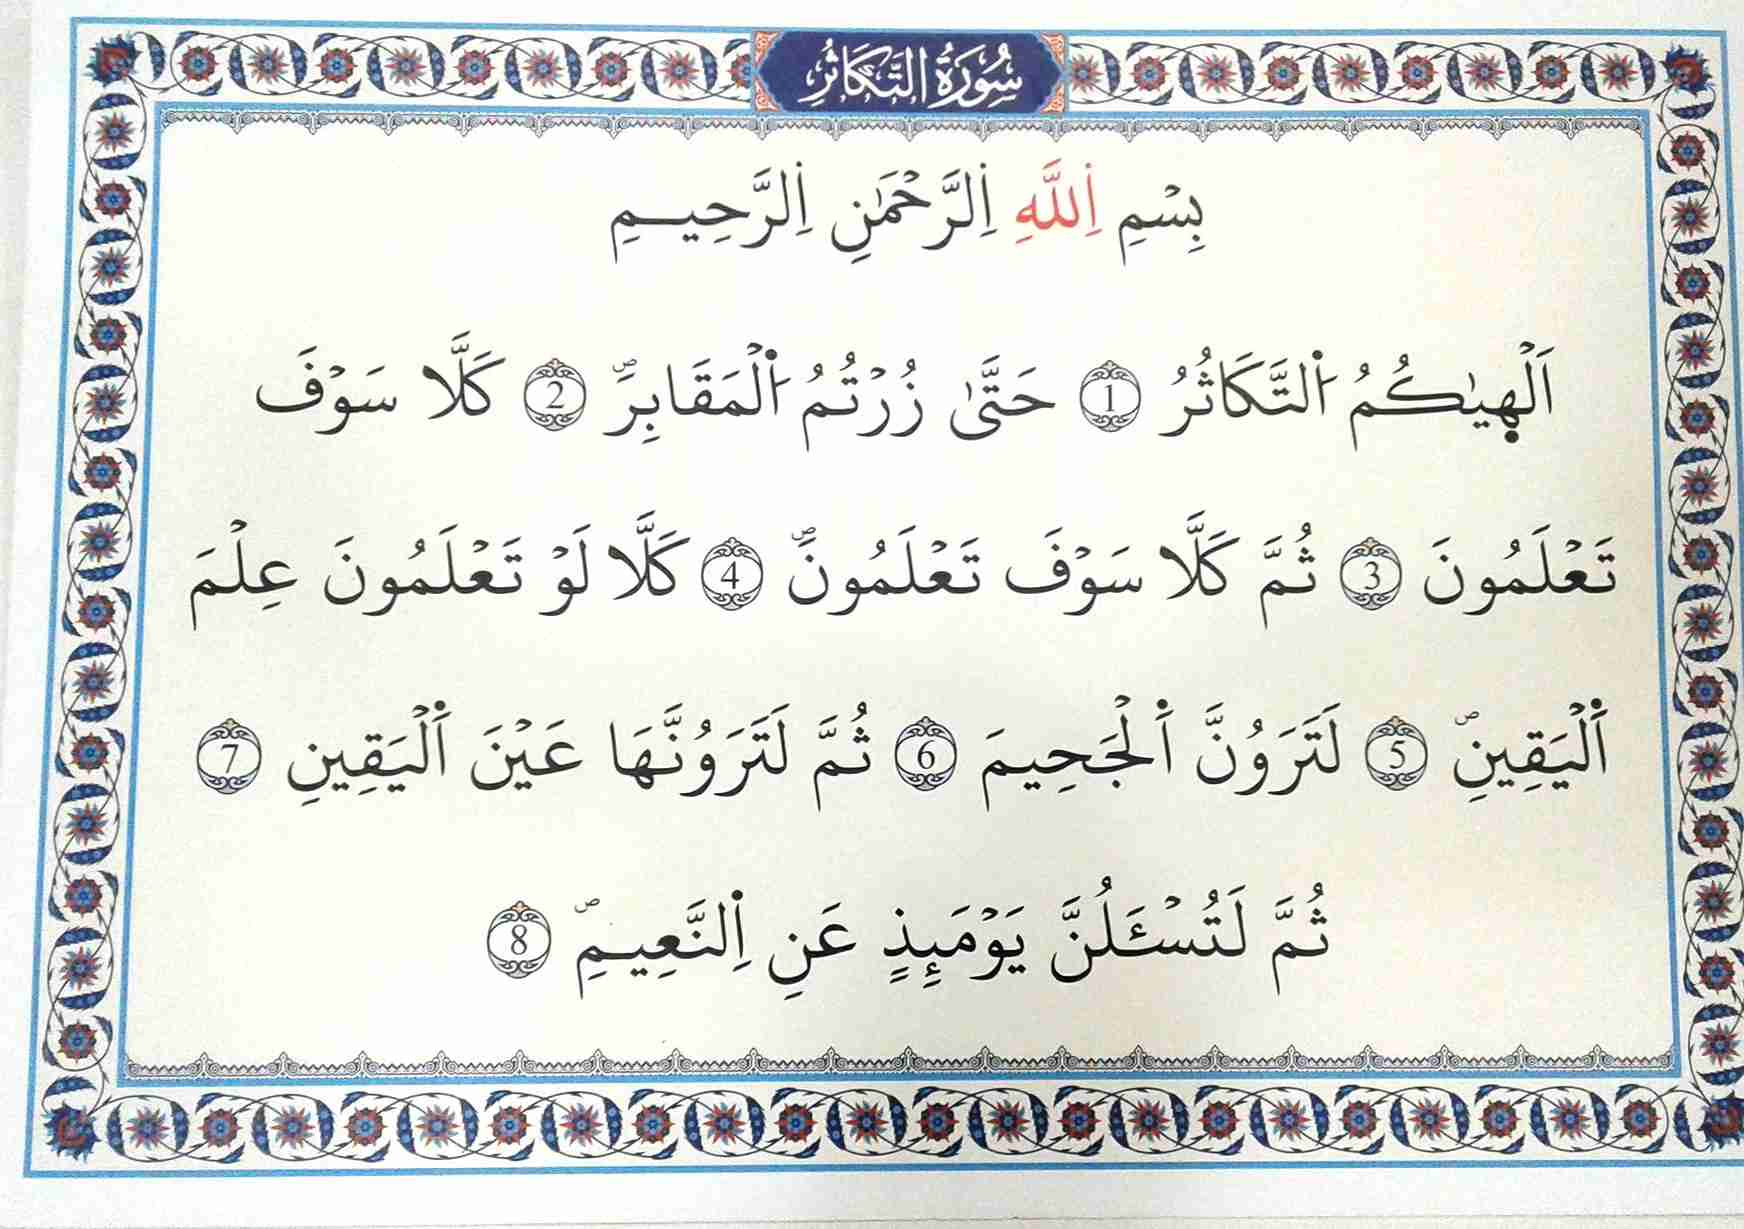 سُورَةُ التَّكَاثُرِ
بِسْمِ اِ۬للَّهِ اِ۬لرَّحْمَٰنِ اِ۬لرَّحِيمِ
اَلْه۪يٰكُمُ اُ۬لتَّكَاثُرُ ١ حَتَّىٰ زُرْتُمُ اُ۬لْمَقَابِرَۖ 2 كَلَّا سَوْفَ
تَعْلَمُونَ 3 ثُمَّ كَلَّا سَوْفَ تَعْلَمُونَۖ 4 كَلَّا لَوْ تَعْلَمُونَ عِلْمَ
اَ۬لْيَقِينِۖ 5 لَتَرَوُنَّ اَ۬لْجَحِيمَ 6 ثُمَّ لَتَرَوُنَّهَا عَيْنَ اَ۬لْيَقِينِ 7
ثُمَّ لَتُسْـَٔلُنَّ يَوْمَئِذٍ عَنِ اِ۬لنَّعِيمِۖ 8